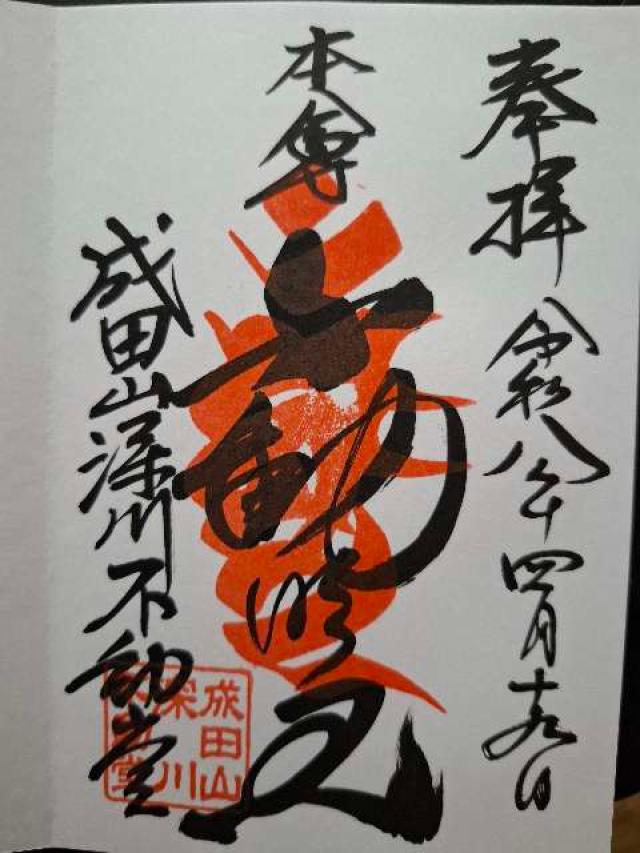 奉拝 令和八年四月十九日
本尊
不動明王
成田山深川不動堂
成田山
深川
不動堂